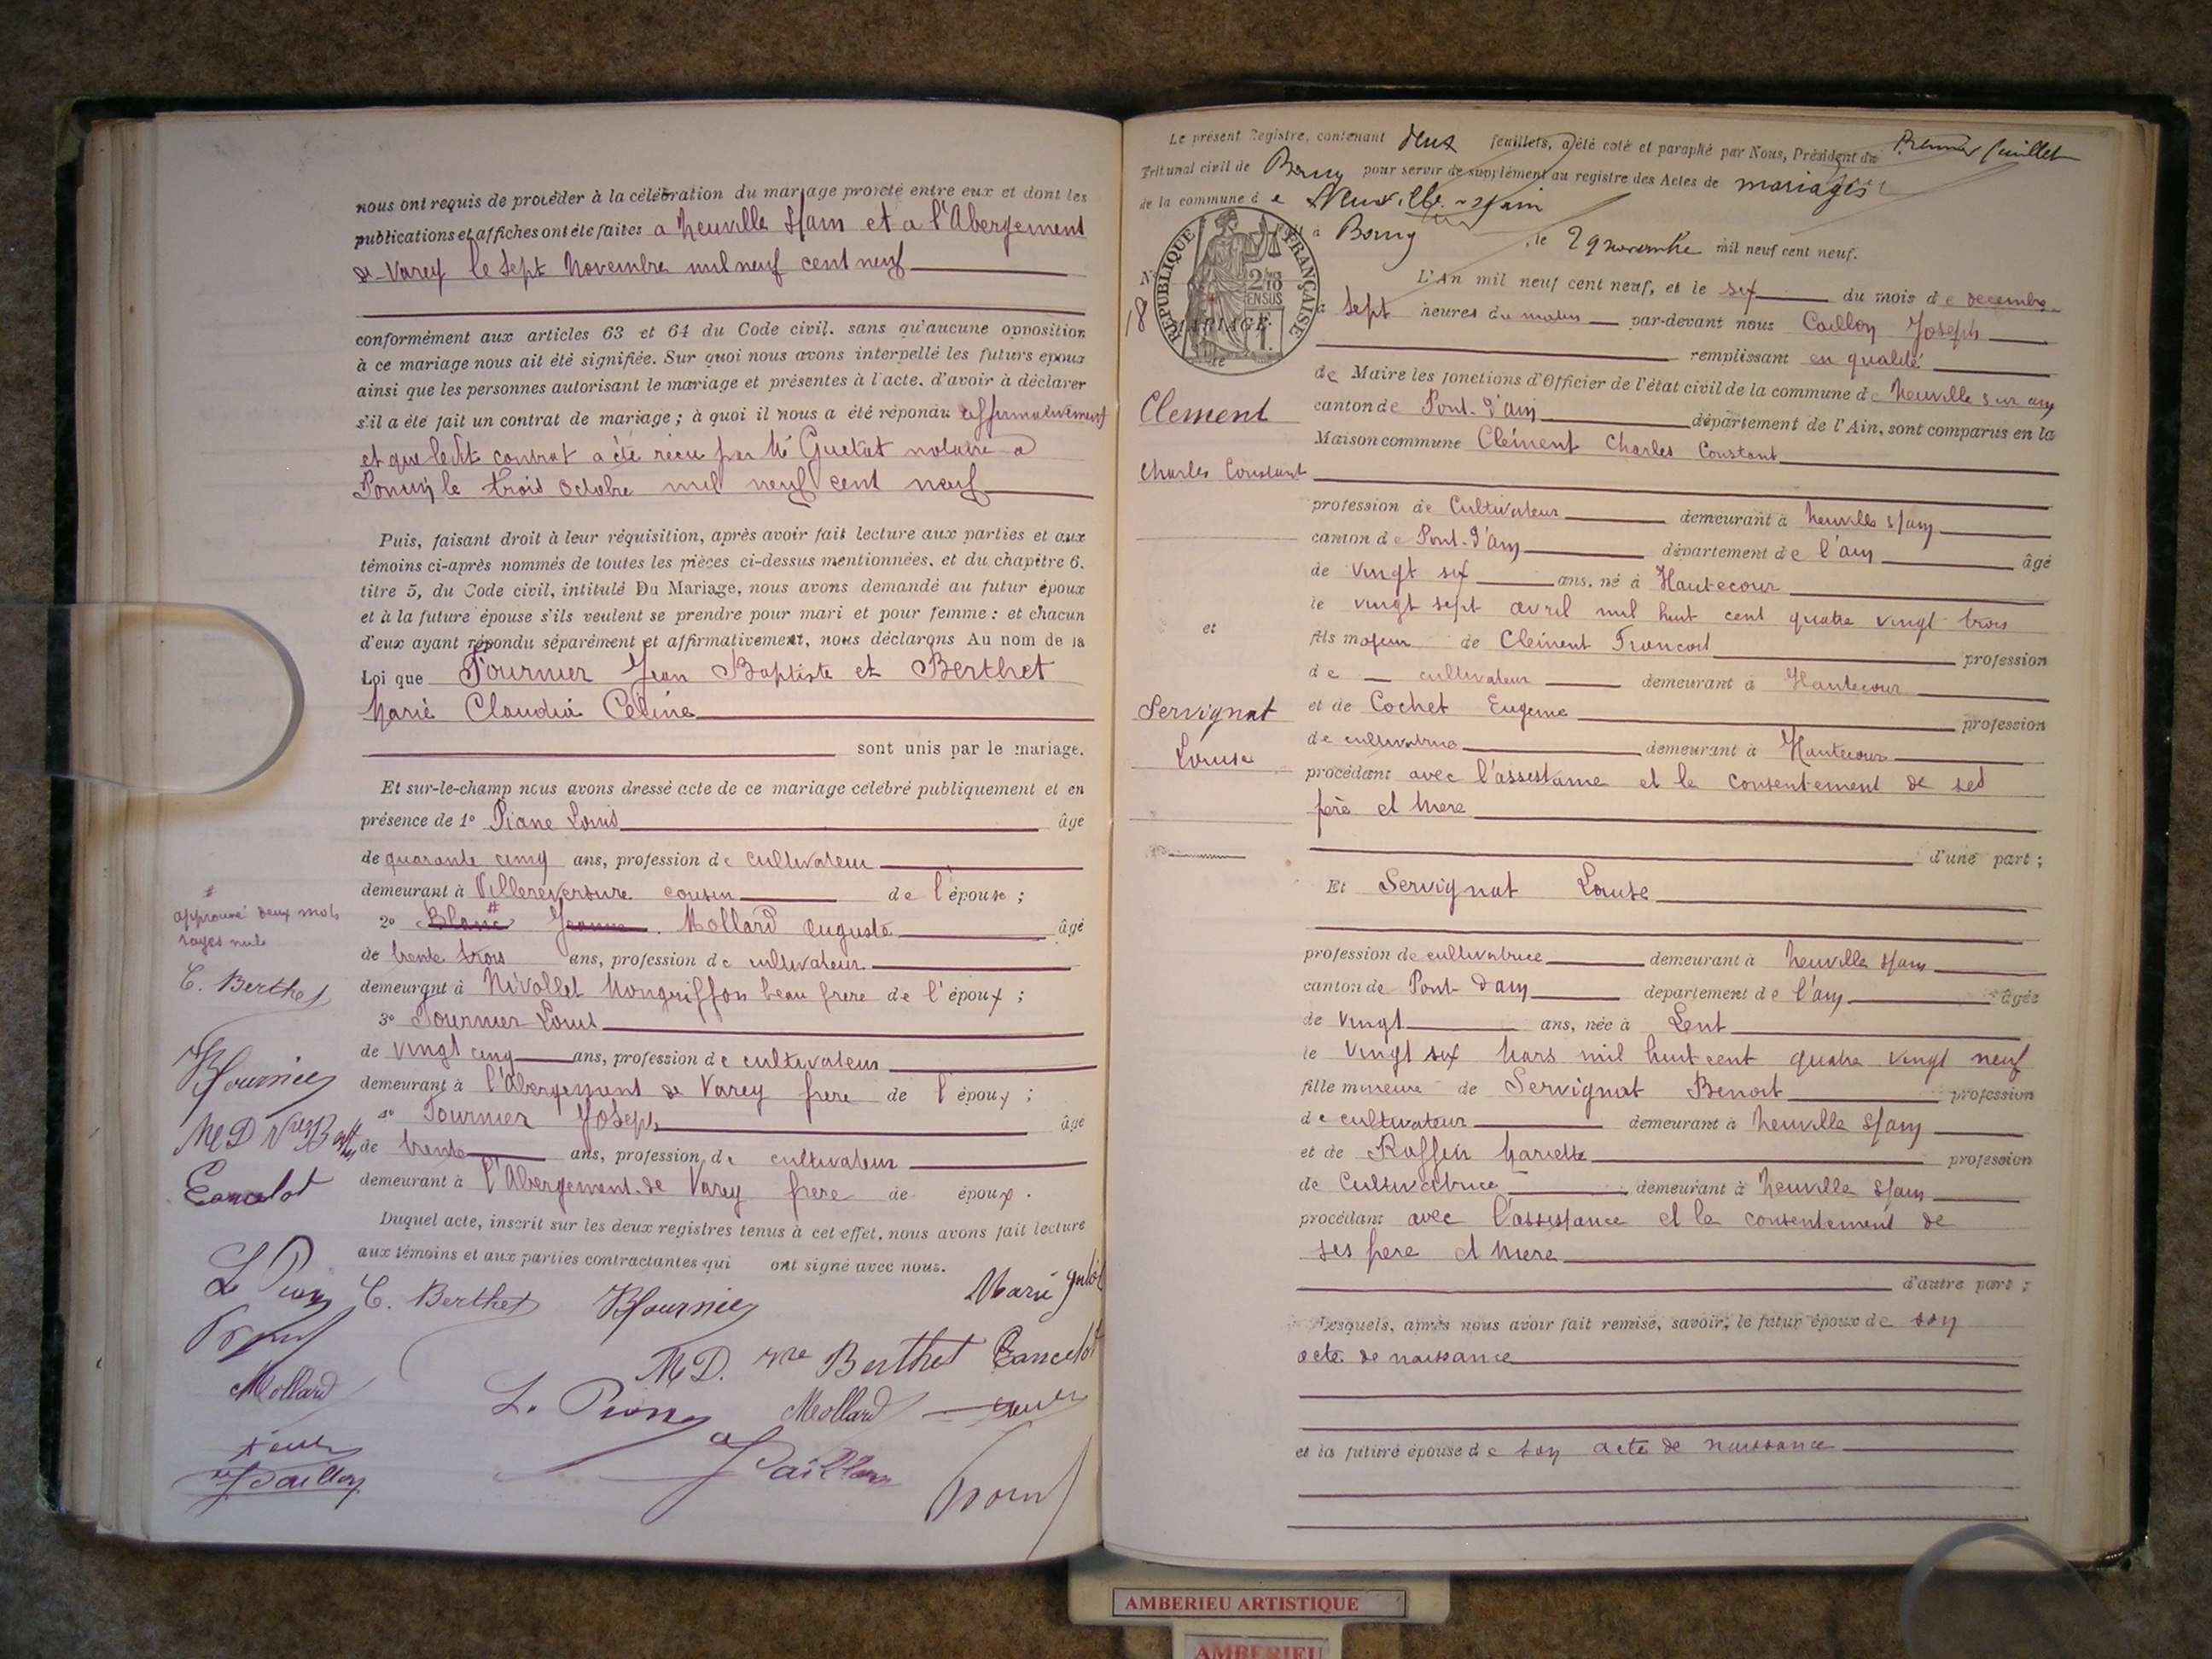 nous ont requis de procéder à la célébration du mariage projeté entre eux et dont les
publications et affiches ont été faites a Neuville s/ain et a l'Abergement
de-Varey le sept Novembre mil neuf cent neuf
conformément aux articles 63 et 64 du Code civil. sans qu'aucune opposition
à ce mariage nous ait été signifiée. Sur quoi nous avons interpellé les futurs epoux
ainsi que les personnes autorisant le mariage et présentes à l'acte. d'avoir à déclarer
s'il a été fait un contrat de mariage ; à quoi il nous a été répondu affirmativement
et que ledit contrat a été recu par Me notaire a
Poncin le trois octobre mil neuf cent neuf
Puis, faisant droit à leur réquisition, après avoir fait lecture aux parties et aux
témoins ci-après nommés de toutes les pièces ci-dessus mentionnées. et du chapitre 6.
titre 5, du Code civil, intitulé Du Mariage, nous avons demandé au futur époux
et à la future épouse s'ils veulent se prendre pour mari et pour femme : et chacun
d'eux ayant répondu séparément et affirmativement, nous déclarons Au nom de la
Loi que Fournier Jean Baptiste et Berthet
Marie Claudia Céline
sont unis par le mariage.
Et sur-le-champ nous avons dressé acte de ce mariage célébré publiquement et en
présence de 1° Piane Louis âgé
de quarante cinq ans, profession de cultivateur
demeurant à Villereversure cousin de l'épouse ;
#
approuvé deux mots
rayés nuls
2° Blanc # Jeanne. Mollard Auguste âgé
de trente trois ans, profession de cultivateur
C. Berthet
demeurant à Nivollet Mongriffon beau frere de l'époux ;
3° Fournier Louis
de vingt cinq ans, profession de cultivateur
Fournier
demeurant à l'Abergement de Varey frere de l'époux ;
4° Fournier Joseph âgé
de trente ans, profession de cultivateur
Lancelot
demeurant à l'Abergement de Varey frere de époux .
Duquel acte, inscrit sur les deux registres tenus à cet effet, nous avons fait lecture
aux témoins et aux parties contractantes qui ont signé avec nous.
C. Berthet Fournier Marie
M D. Berthet Lancelot
Mollard
L. Mollard
Caillon
Caillon
Le présent Registre, contenant deux feuillets, a été coté et paraphé par Nous, Président du Premier feuillet
Tribunal civil de Bourg pour servir de supplément au registre des Actes de mariages
de la commune de Neuville-s/ain
à Bourg, le 29 novembre mil neuf cent neuf.
RÉPUBLIQUE FRANÇAISE
2/10 EN SUS
N° 18
MARIAGE
de
L'An mil neuf cent neuf, et le six du mois de decembre
à sept heures du matin par-devant nous Caillon Joseph
remplissant en qualité
de Maire les fonctions d'Officier de l'état civil de la commune de Neuville sur ain
canton de Pont-d'ain département de l'Ain, sont comparus en la
Maison commune Clément Charles Constant
Clement
Charles Constant
profession de Cultivateur demeurant à Neuville s/ain
canton de Pont-d'ain département de l'ain âgé
de vingt six ans. né à Hautecour
le vingt sept avril mil huit cent quatre vingt trois
et
fils majeur de Clément Francois profession
de cultivateur demeurant à Hautecour
Servignat
Louise
et de Cochet Eugenie profession
de cultivatrice demeurant à Hautecour
procédant avec l'assistance et le consentement de ses
père et mere
d'une part ;
Et Servignat Louise
profession de cultivatrice demeurant à Neuville s/ain
canton de Pont-d'ain departement de l'ain âgée
de vingt ans, née à Lent
le vingt six Mars mil huit cent quatre vingt neuf
fille mineure de Servignat Benoit profession
de cultivateur demeurant à Neuville s/ain
et de Ruffin Mariette profession
de Cultivatrice demeurant à Neuville s/ain
procédant avec l'assistance et le consentement de
ses pere et mere
d'autre part ;
Lesquels, après nous avoir fait remise, savoir, le futur époux de son
acte de naissance
et la future épouse de son acte de naissance
AMBERIEU ARTISTIQUE
AMBERIEU